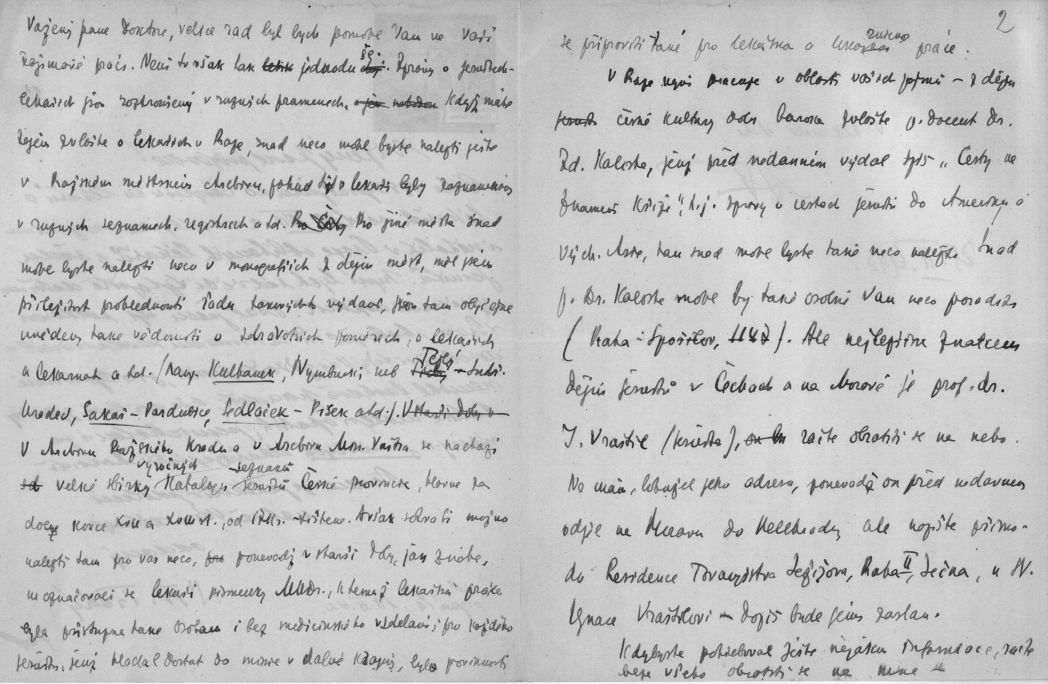 Vážený pane Doktore, velice rad byl bych pomohl Vam ve Vaší
zajimavé praci. Neni to však tak jednoduché. Zpravy o jesuitech-
lekařich jsou roztroušeny v ruznych pramenech. Když máte
zájem zvlašte o lekařich v Praze, snad neco mohl byste nalezti ješte
v Pražském městském Archivu, pokud tito lekaři byly zaznamenany
v ruznych seznamech, registrech a td. Pro jiné města snad
mohl byste nalezti neco v monografiich z dějin měst, měl jsem
přiležitost problednouti řadu takových vydani, jsou tam obyčejne
uvedeny take vědomosti o zdravotnich poměrech, o lekařich
a lekarnach a td. /Napr. Kulhanek, Nymburk; neb Teplý - Jindř.
Hradec, Sakař - Pardubice, Sedlaček - Pisek a td./.
V Archivu Pražského Hradu a v Archivu Min. Vnitra se nachazi
velké sbirky výročných Katalogů seznamů jesuitů České provincie, hlavne za
dobu konce XVII a XVIII st., od 17 . tišteno. Avšak možno
nalezti tam pro vas neco, ponevadž v starši doby, jak znate,
neoznačovali se lekaři pismenky MUDr., k temuž lekařská práce
byla přistupna take osobam i bez medicinského vzdelani; pro každého
jesuitu, jenž hledal dostat do misie v dalné kraje, bylo povinnosti
2
se připraviti také pro lekařska a práce.
V Praze nyni pracuje v oblasti vašich zájmů - z dějin
české kultury doby baroka zvlašte p. docent Dr.
Zd. Kalista, jenž před nedavnem vydal spis "Cesty ve
znameni Kříže", t.j. zpravy o cestach jesuitů do Ameriky a
Vých. Asie, tam snad mohl byste také neco nalezti. Snad
p. Dr. Kalista mohl by také osobně Vam neco poradit
(Praha-Spořilov, ). Ale nejlepším znatcem
dějin jesuitů v Čechach a na Moravě je prof. dr.
J. Vraštil /jesuita/, račte obratiti se na neho.
Ne mám, bohužel jeho adresu, ponevadž on před nedavnem
odjel na Moravu do Velehradu, ale napište přimo
do Residence Tovaryšstva Ježišova, Praha II, Ječna, u Sv.
Ignace Vraštilovi - dopis bude jemu zaslan.
Kdybyste potřeboval ješte nejakou informace, račte
beze všeho obratiti se na mne